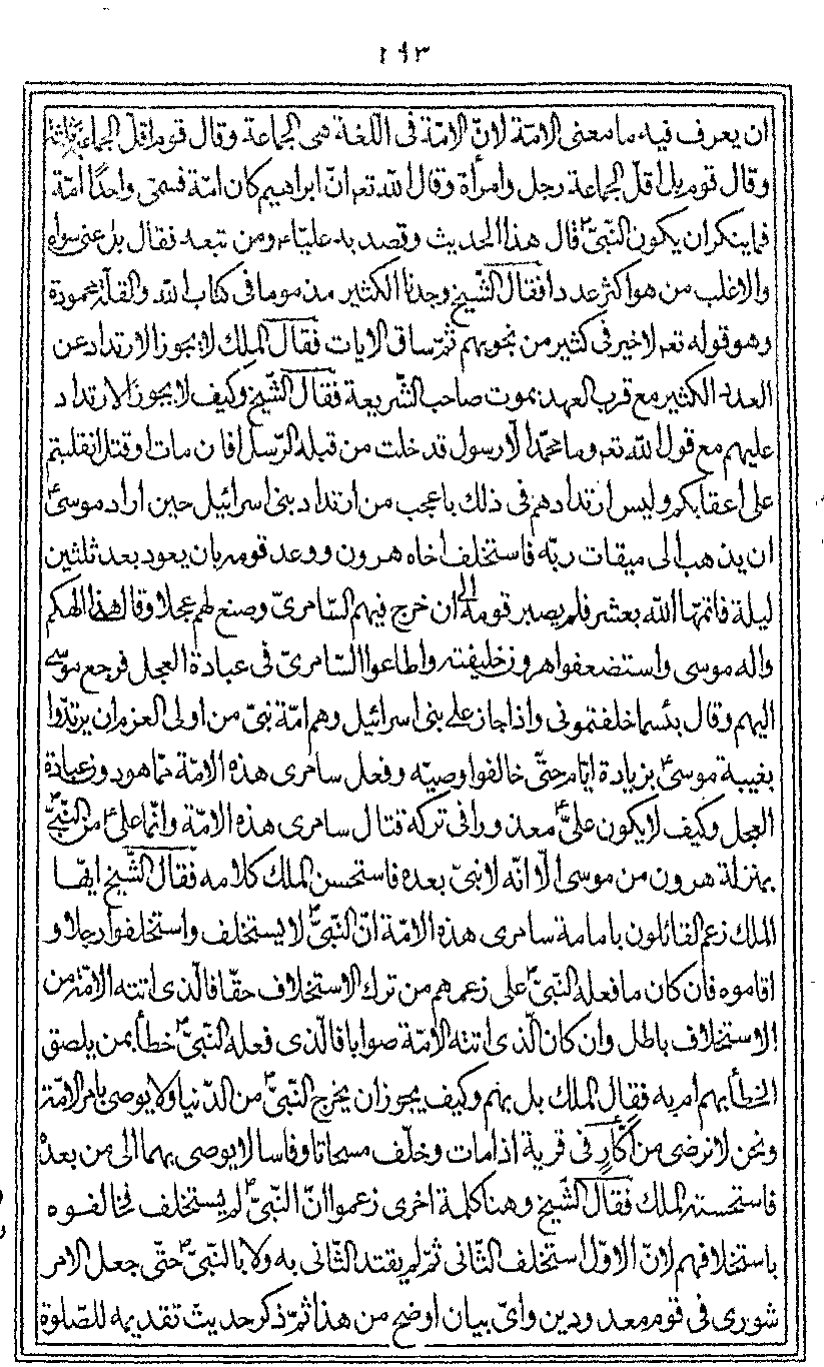 ١٩٣
ان يعرف فيه ما معنى الامّة لانّ الامّة فى اللّغة هى الجماعة وقال قوم اقلّ الجماعة ثلثة
وقال قوم بل اقلّ الجماعة رجل وامرأة وقال الله تعم انّ ابراهيم كان امّة فسمّى واحدًا امّة
فما ينكران يكون النّبىّ ص قال هذا الحديث وقصد به عليّاء ومن تبعه فقال بل عنى سواه
والاغلب من هو اكثر عددا فقال الشّيخ وجدنا الكثير مذموما فى كتاب الله والقلّة محمودة
وهو قوله تعم لاخير فى كثير من نجويهم ثمّ ساق الايات فقال الملك لا يجوز الارتداد عن
العدد الكثير مع قرب العهد بموت صاحب الشّريعة فقال الشّيخ وكيف لا يجوز الارتداد
عليهم مع قول الله تعم وما محمّد الّا رسول قد خلت من قبله الرّسل افان مات او قتل انقلبتم
على اعقابكم وليس ارتدادهم فى ذلك باعجب من ارتداد بنى اسرائيل حين اراد موسى ع
ان يذهب الى ميقات ربّه فاستخلف اخاه هرون ووعد قومه بان يعود بعد ثلثين
ليلة فاتمّها الله بعشر فلم يصبر قومه الى ان خرج فيهم السّامرىّ وصنع لهم عجلا وقال هذا الهكم
واله موسى واستضعفوا هرون خليفته واطاعوا السّامرىّ فى عبادة العجل فرجع موسى
اليهم وقال بئسما خلفتمونى واذا جاز على بنى اسرائيل وهم امّة نبىّ من اولى العزم ان يرتدّوا
بغيبة موسى ع بزيادة ايّام حتّى خالفوا وصيّه وفعل سامرى هذه الامّة ممّا هو دون عبادة
العجل وكيف لا يكون علىّ ع معذورا فى تركه قتال سامرى هذه الامّة وانّما علىّ ع من النّبىّ ص
بمنزلة هرون من موسى الّا انّه لا نبىّ بعده فاستحسن الملك كلامه فقال الشّيخ ايّها
الملك زعم القائلون بامامة سامرى هذه الامّة انّ النّبىّ ص لا يستخلف واستخلفوا رجلا و
اقاموه فان كان ما فعله النّبىّ ص على زعمهم من ترك الاستخلاف حقّا فالّذى اتته الامّة من
الاستخلاف باطل وان كان الّذى اتته الامّة صوابا فالّذى فعله النّبىّ ص خطأ بمن يلصق
الخطأ بهم ام به فقال الملك بل بهم وكيف يجوز ان يخرج النّبىّ ص من الدّنيا ولا يوصى بامر الامّة
ونحن لا نرضى من اكّار فى قرية اذا مات وخلّف مسحاتا وفاسا لا يوصى بهما الى من بعده
فاستحسنه الملك فقال الشّيخ وهنا كلمة اخرى زعموا انّ النّبىّ ص لم يستخلف فخالفوه
باستخلافهم لانّ الاوّل استخلف الثّانى ثمّ لم يقتد الثّانى به ولا بالنّبىّ ص حتّى جعل الامر
شورى فى قوم معدودين واىّ بيان اوضح من هذا ثمّ ذكر حديث تقديمه للصّلوة